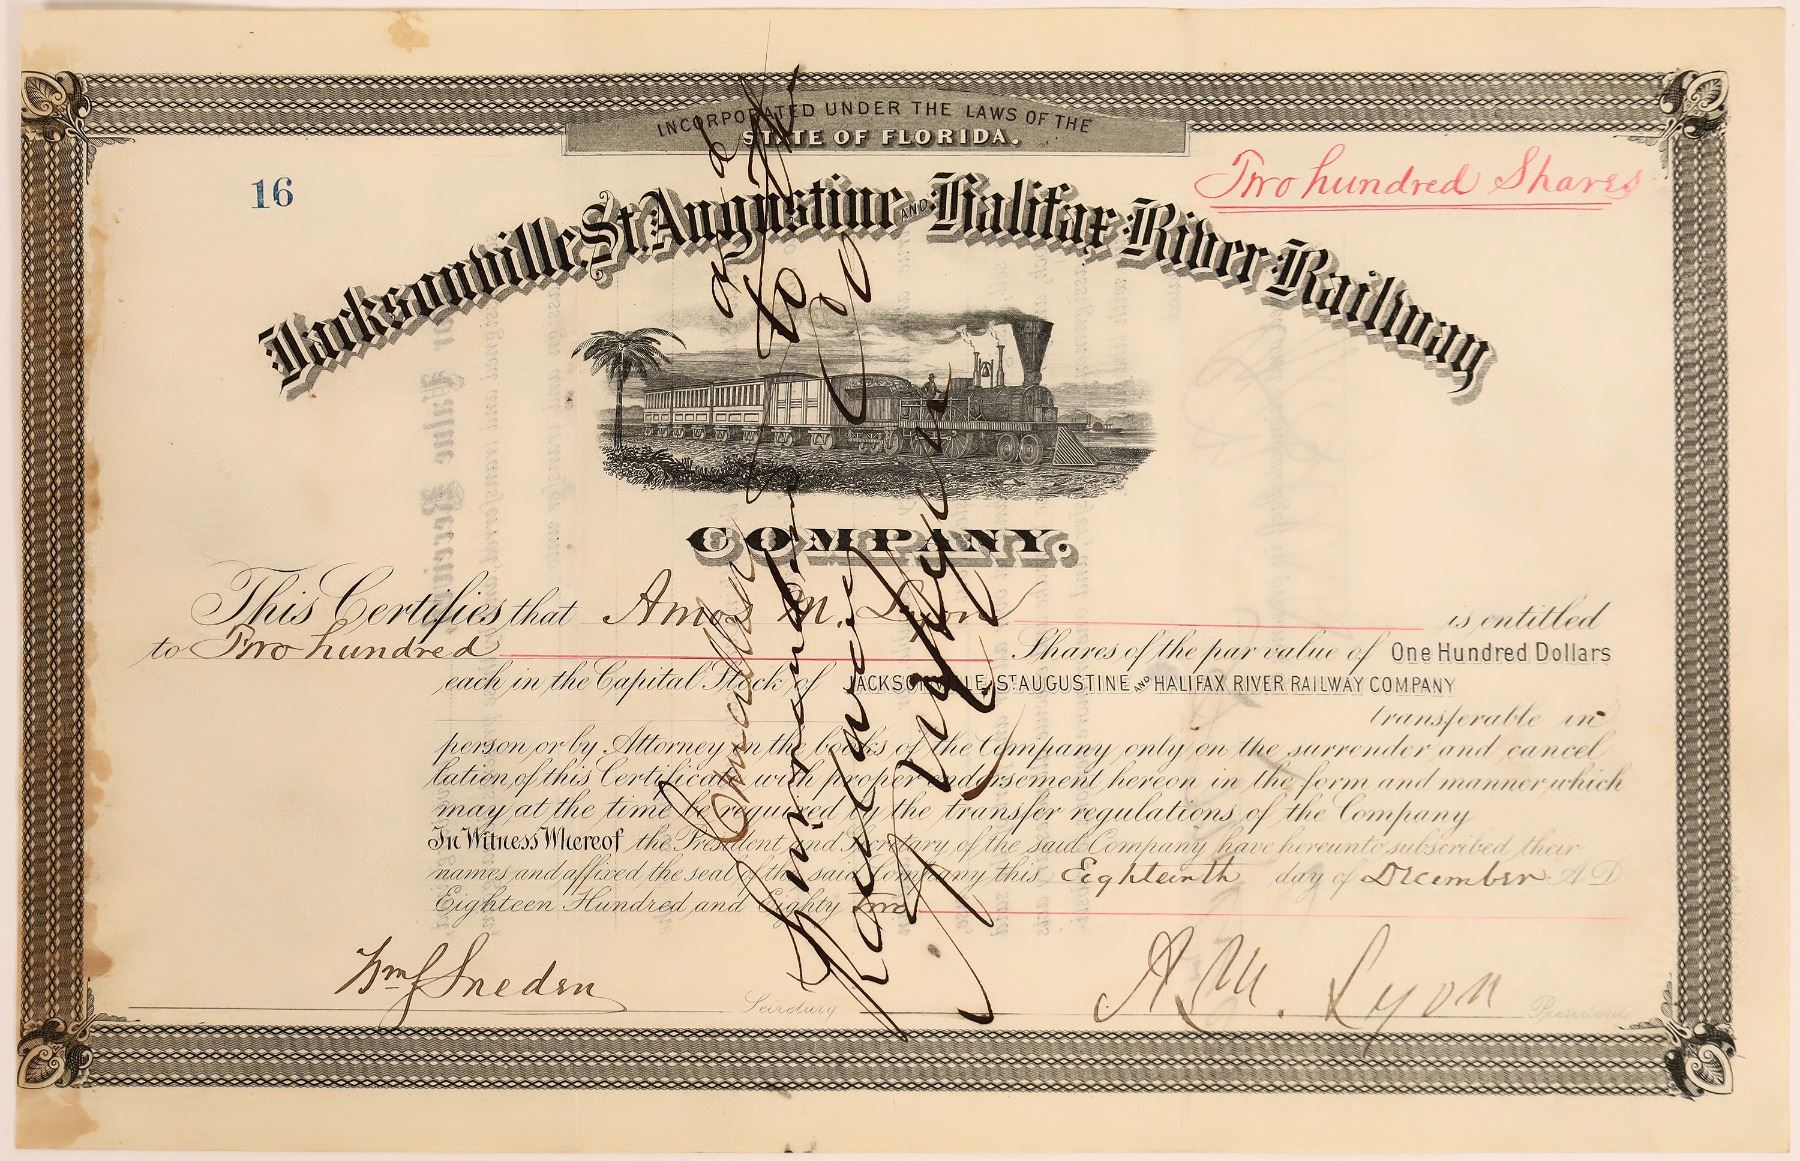 INCORPORATED UNDER THE LAWS OF THE
STATE OF FLORIDA.
16
Two hundred Shares
Jacksonville, St. Augustine AND Halifax River Railway
COMPANY.
This Certifies that Amos M. Lyon is entitled
to Two hundred Shares of the par value of One Hundred Dollars
each in the Capital Stock of JACKSONVILLE, ST. AUGUSTINE AND HALIFAX RIVER RAILWAY COMPANY
transferable in
person, or by Attorney on the books of the Company only on the surrender and cancel
lation, of this Certificate, with proper endorsement hereon in the form and manner, which
may at the time be required by the transfer regulations of the Company
In Witness Whereof the President and Secretary of the said Company have hereunto subscribed their
names, and affixed the seal of the said Company this Eighteenth day of December A D
Eighteen Hundred and Eighty Two
Wm J Sneden Secretary
A. M. Lyon President
Cancelled and